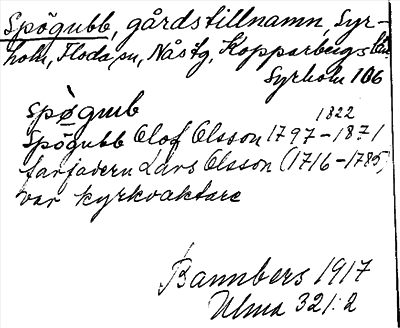 Spögubb, gårdstillnamn, Syr-
holn, Floda sn, Nås tg, Kopparbergs län
Syrholn 106
spøgub
1822
Spögubb Olof Olsson 1797–1871
farfadern Lars Olsson (1716–1785)
var kyrkvaktare
Bannbers 1917
Ulma 321:2